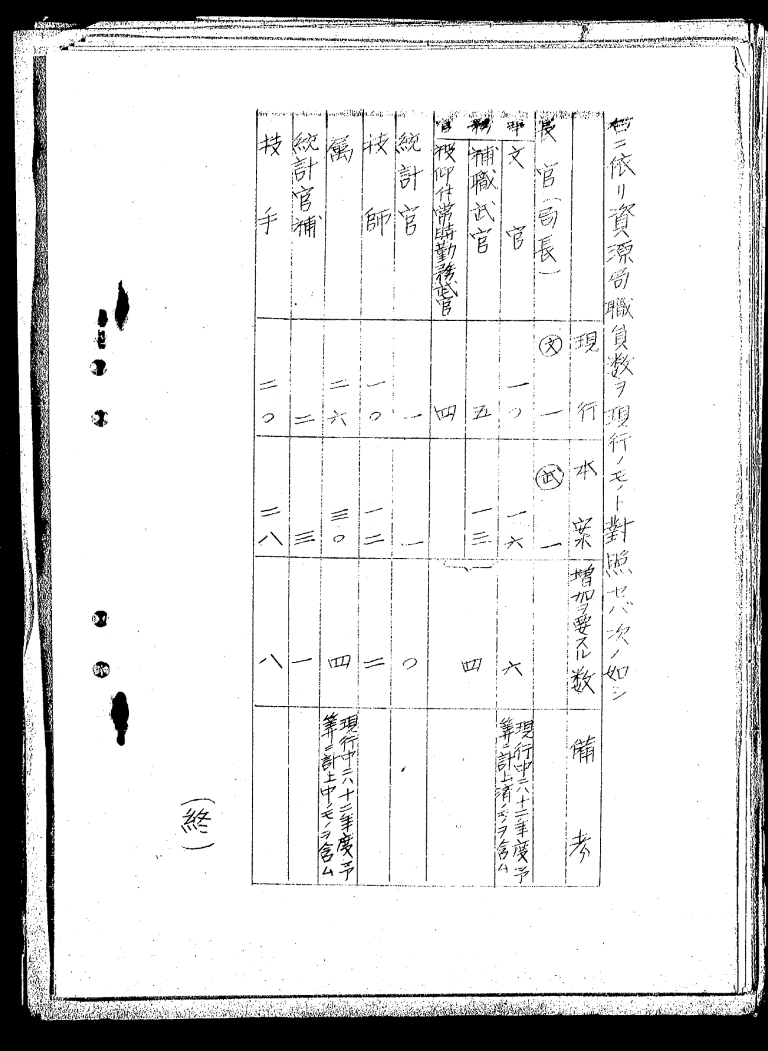 右ニ依リ資源局職員数ヲ現行ノモノト對照セバ次ノ如シ
現行 本案 増加ヲ要スル数 備考
長官(局長) 文 一 武 一
文官 一〇 一六 六 現行中ニハ十二年度予算ニ計上済ノモノヲ含ム
補職武官 五 一三 四
被仰付常時勤務武官 四
統計官 一 一 〇
技師 一〇 一二 二
属 二六 三〇 四 現行中ニハ十二年度予算ニ計上中ノモノヲ含ム
統計官補 二 三 一
技手 二〇 二八 八
(終)